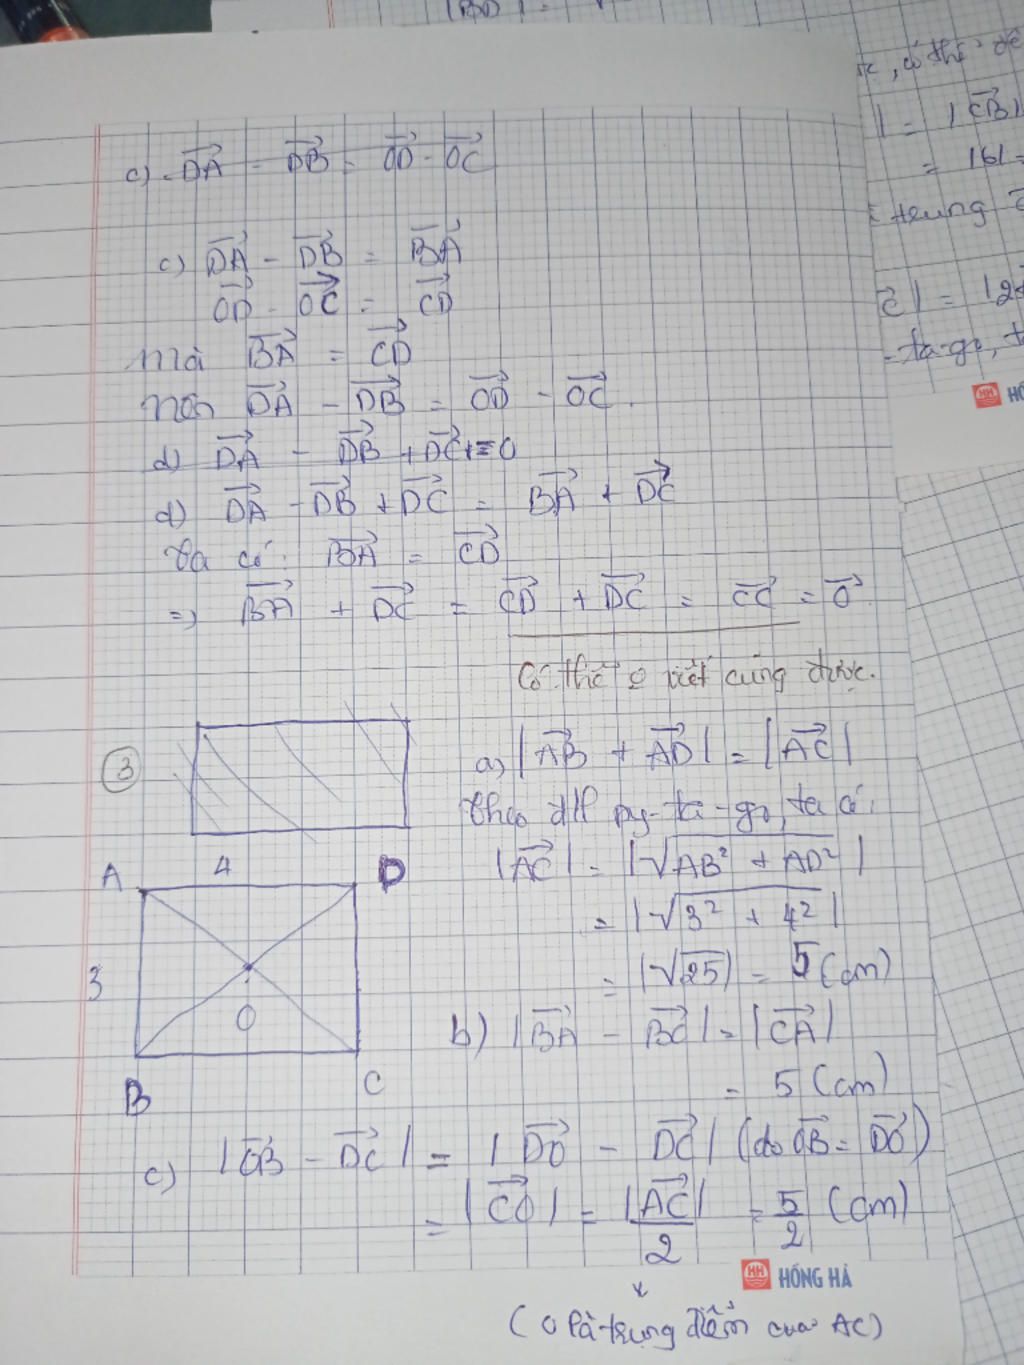 |BD| =
c) DA - DB = OD - OC
c) DA - DB = BA
OD - OC = CD
Mà BA = CD
Nên DA - DB = OD - OC.
d) DA - DB + DC = 0
d) DA - DB + DC = BA + DC
Ta có: BA = CD
=> BA + DC = CD + DC = CC = 0
Có thể o viết cũng được.
3
a) |AB + AD| = |AC|
Theo đlf py-ta-go, ta có:
|AC| = |√AB² + AD²|
= |√3² + 4²|
= |√25| = 5 (cm)
A 4 D
3
O
B C
b) |BA - BC| = |CA|
= 5 (cm)
c) |OB - DC| = |DO - DC| (do OB = DO)
= |CO| = |AC|/2 = 5/2 (cm)
(O là trung điểm của AC)
HH HỒNG HÀ
, có thể
| = |CB|
= |6| =
trung
c| = |2
-ta-go, t
HH HỒ